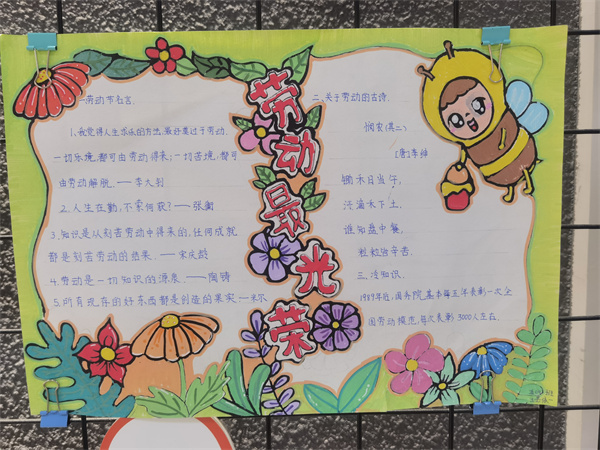 劳动最光荣
一劳动节名言.
1.我觉得人生求乐的方法,最好莫过于劳动.
一切乐境,都可由劳动得来,一切苦境,都可
由劳动解脱.——李大钊
2.人生在勤,不索何获?——张衡
3.知识是从刻苦劳动中得来的,任何成就
都是刻苦劳动的结果.——宋庆龄
4.劳动是一切知识的源泉.——陶铸
5.所有现存的好东西都是创造的果实.—米尔
二.关于劳动的古诗.
悯农(其二)
[唐]李绅
锄禾日当午,
汗滴禾下土.
谁知盘中餐,
粒粒皆辛苦.
三.冷知识.
1989年后,国务院基本每五年表彰一次全
国劳动模范,每次表彰3000人左右.